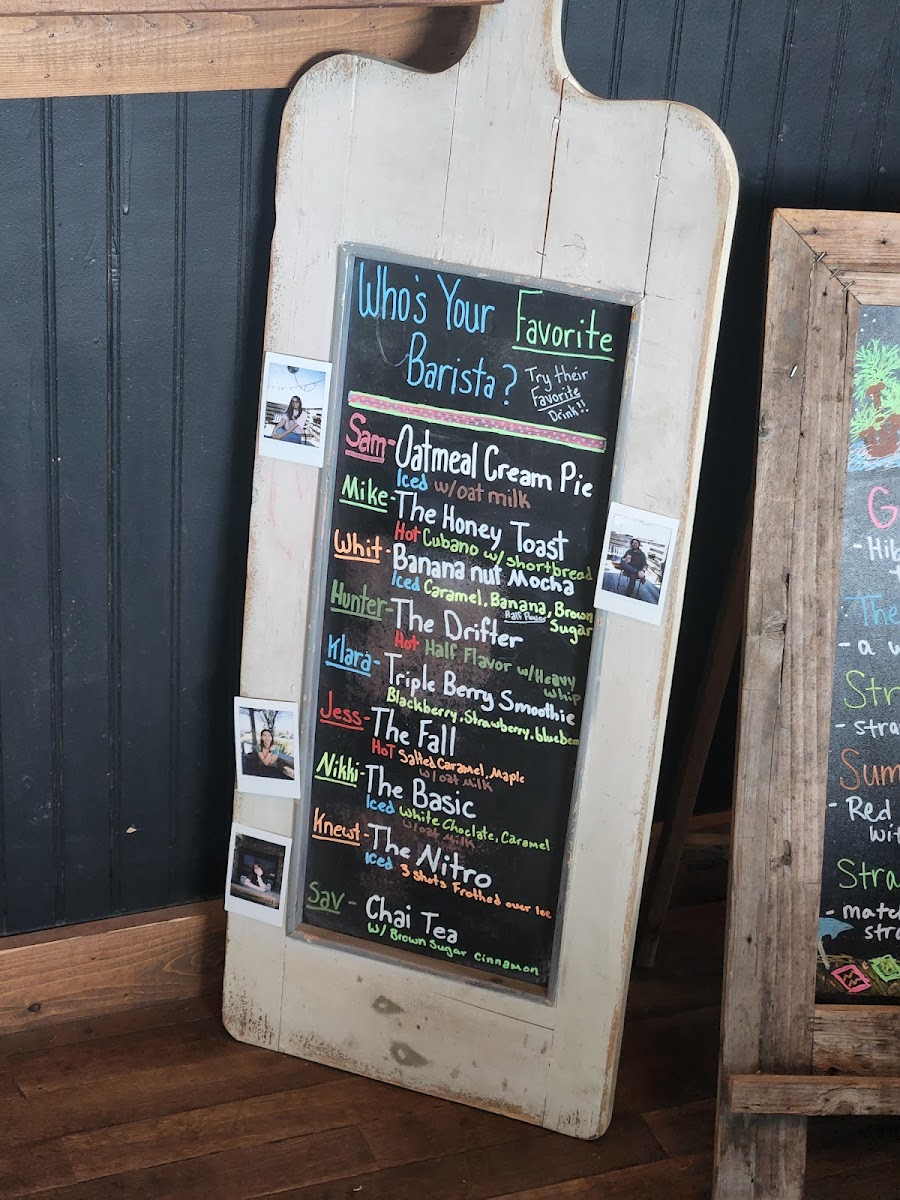 Who's Your Favorite
Barista?
Try their
Favorite
Drink!!
Sam - Oatmeal Cream Pie
Iced w/oat milk
Mike - The Honey Toast
Hot Cubano w/ shortbread
Whit - Banana nut Mocha
Iced Caramel, Banana, Brown
Sugar
Hunter - The Drifter
Half Flavor
Hot Half Flavor w/Heavy
Whip
Klara - Triple Berry Smoothie
Blackberry, Strawberry, blueberr
Jess - The Fall
HOT Salted Caramel, Maple
w/oat milk
Nikki - The Basic
Iced White Choclate, Caramel
w/oat milk
Knewt - The Nitro
Iced 3 shots Frothed over Ice
Sav - Chai Tea
w/ Brown Sugar Cinnamon
G
- Hib
The
- a w
Str
- stra
Sum
- Red
wit
Stra
- matc
stra